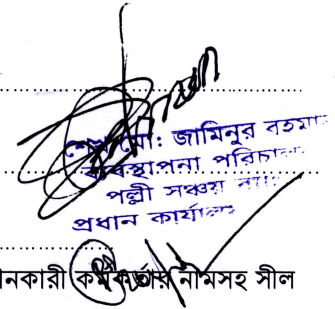 মো: জামিনুর রহমান
ব্যবস্থাপনা পরিচালক
পল্লী সঞ্চয় ব্যাংক
প্রধান কার্যালয়
নকারী কর্মকর্তার নামসহ সীল